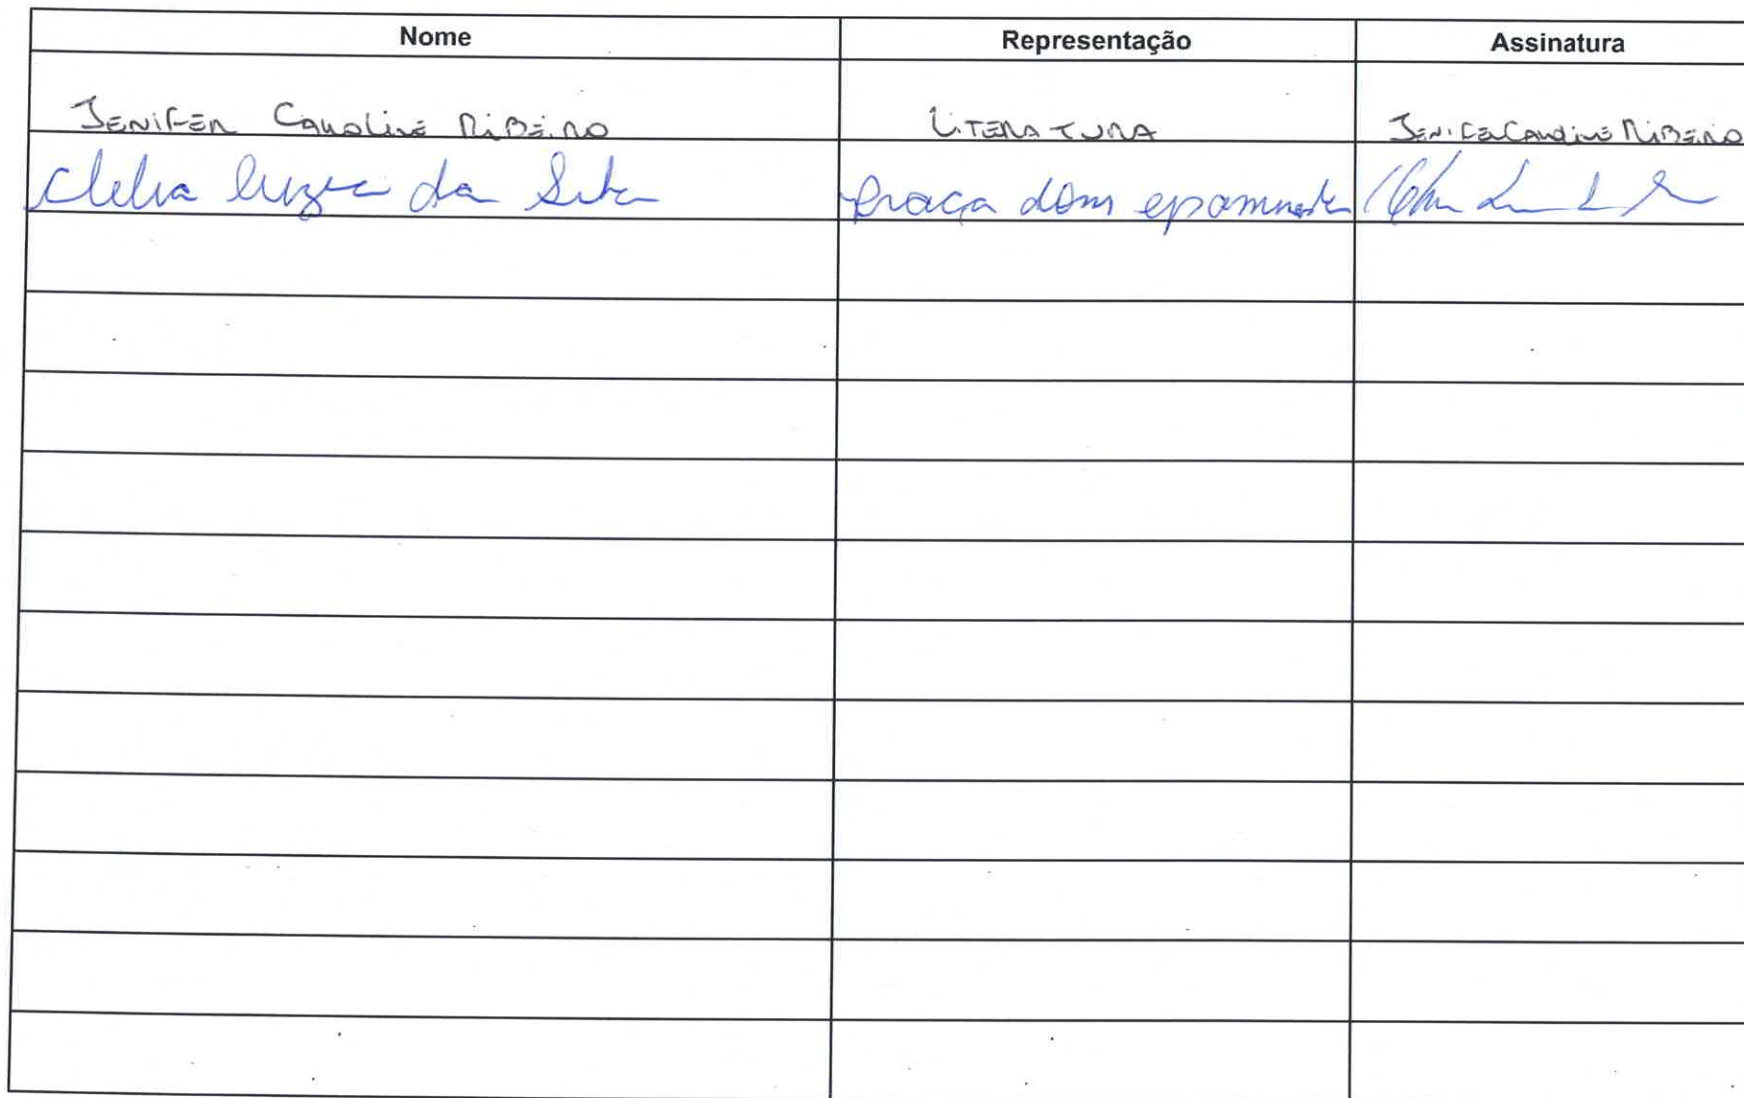 Nome Representação Assinatura
JENIFER CAROLINE RIBEIRO LITERATURA JENIFER CAROLINE RIBEIRO
Clelia luzia da Silva Praça dom epaminondas